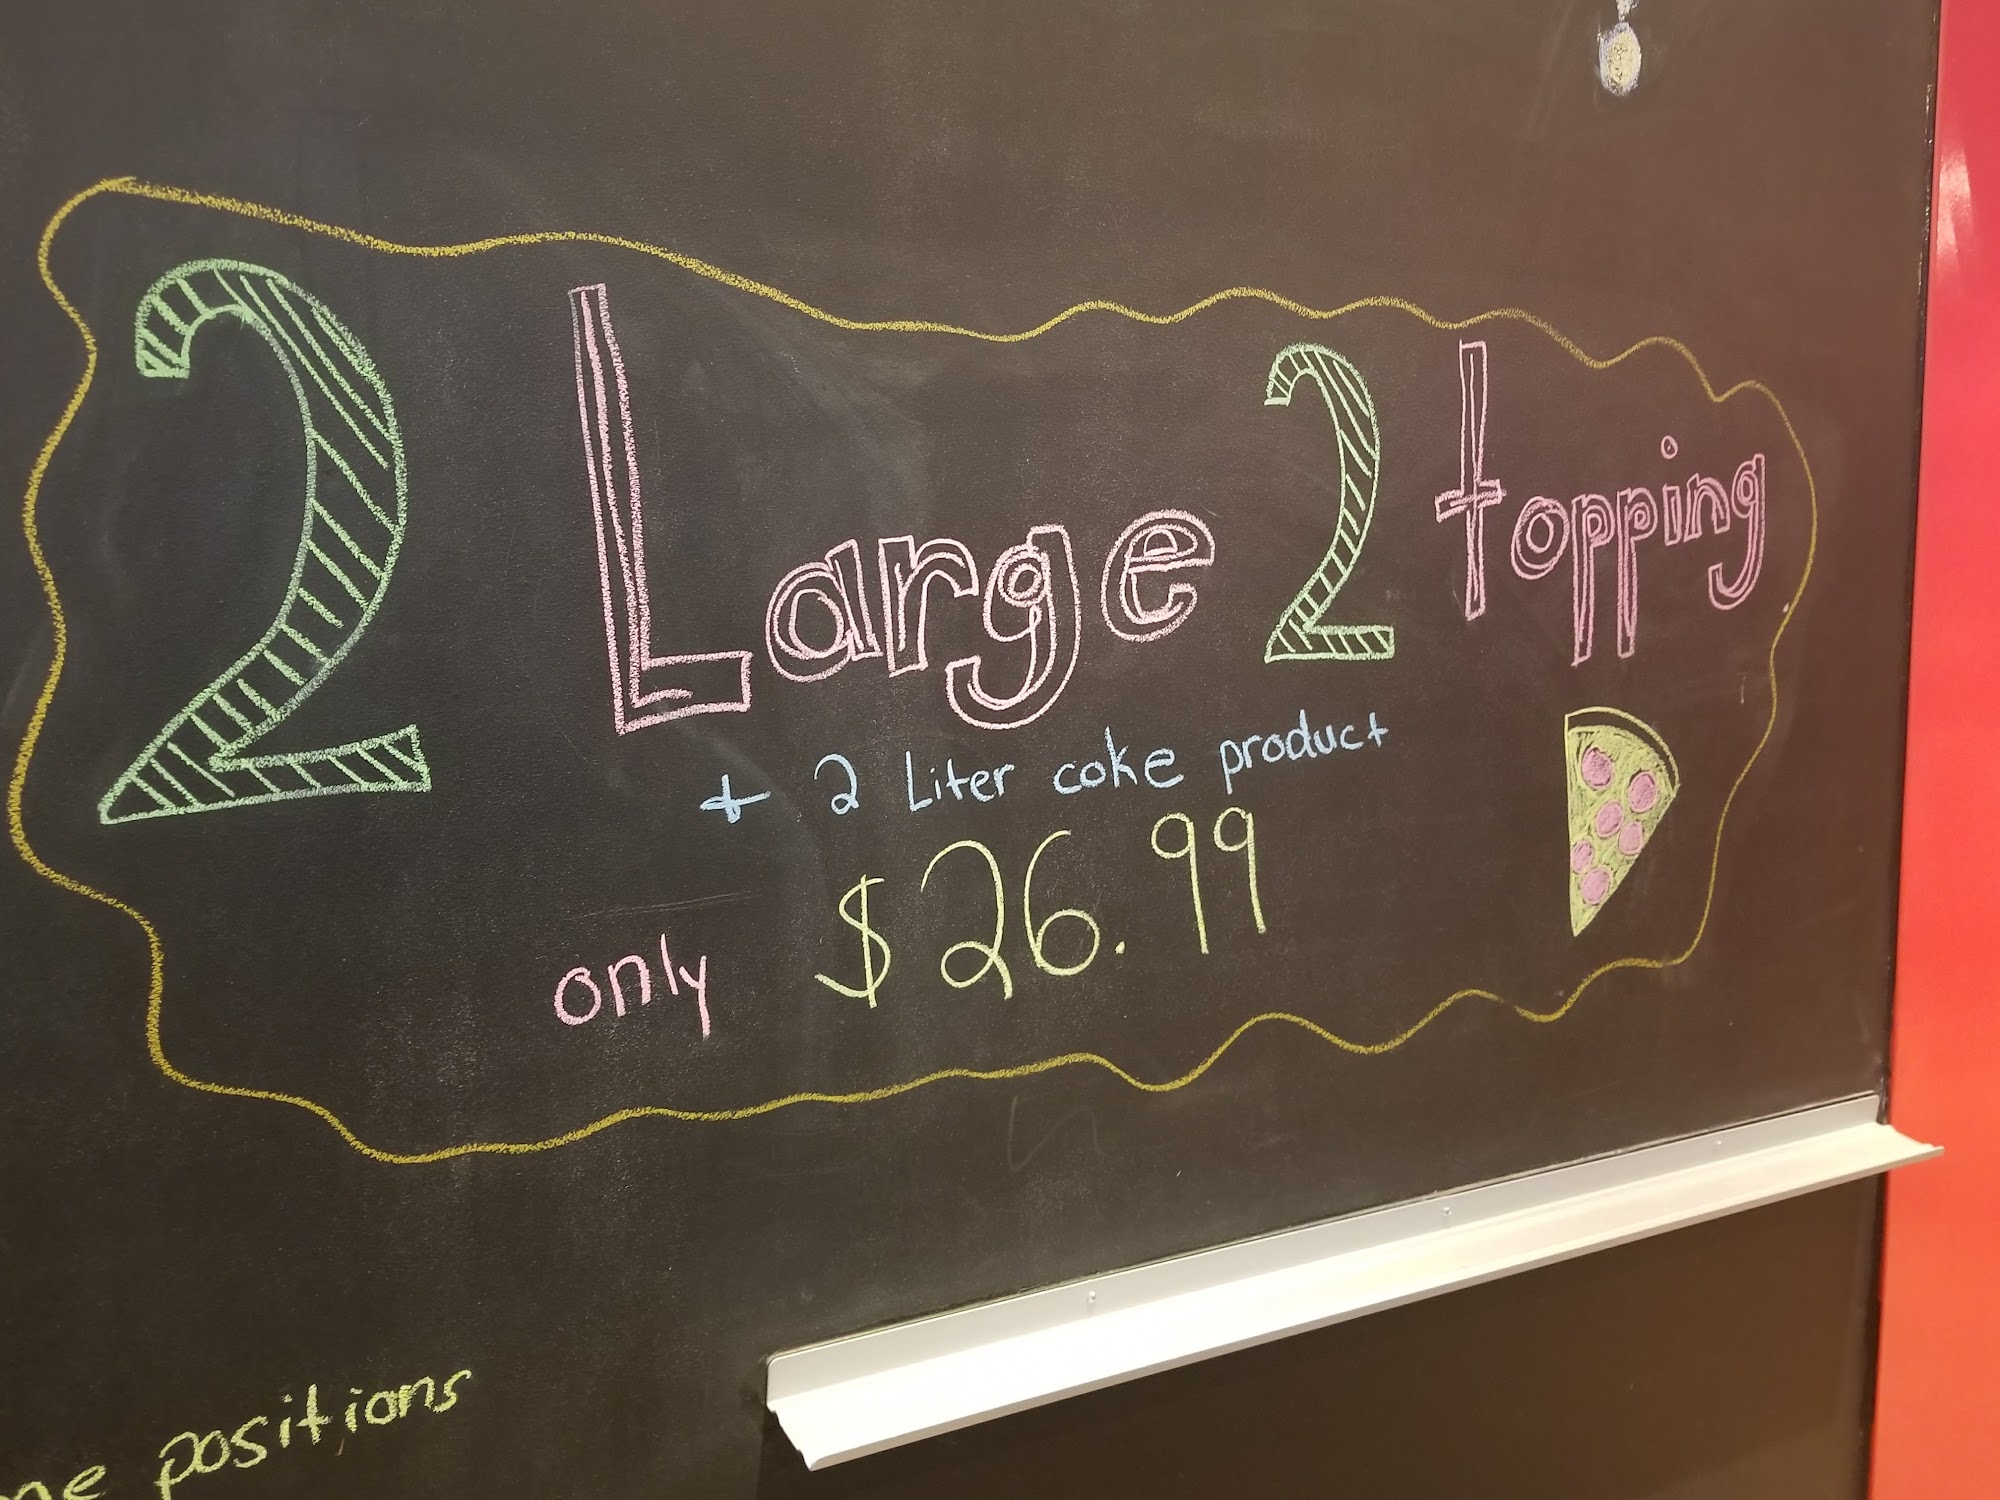 2 Large 2 topping
+ 2 Liter coke product
only $26.99
positions